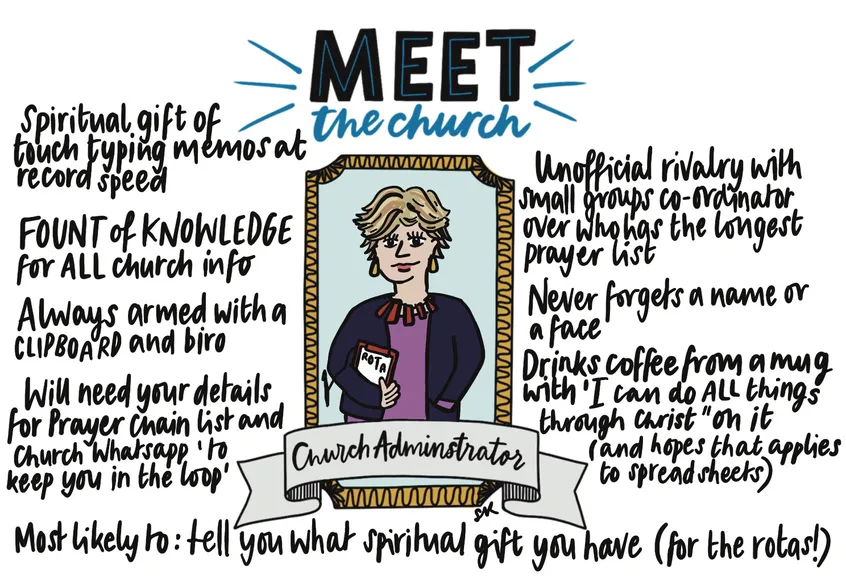 MEET
the church
Spiritual gift of
touch typing memos at
record speed
FOUNT of KNOWLEDGE
for ALL church info
Always armed with a
CLIPBOARD and biro
Will need your details
for Prayer Chain list and
Church Whatsapp 'to
keep you in the loop'
Unofficial rivalry with
small groups co-ordinator
over who has the longest
prayer list
Never forgets a name or
a face
Drinks coffee from a mug
with 'I can do ALL things
through Christ" on it
(and hopes that applies
to spreadsheets)
ROTA
Church Adminstrator
SK
Most likely to: tell you what spiritual gift you have (for the rotas!)